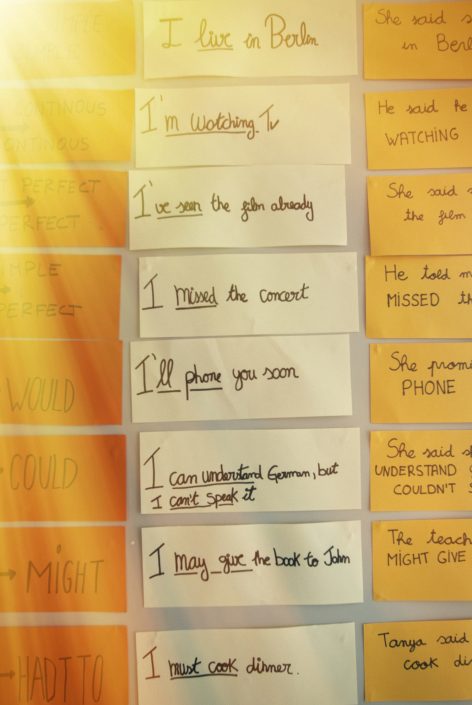 I live in Berlin
She said s
in Berl
CONTINOUS
CONTINOUS
I'm watching Tv
He said he
WATCHING
PERFECT
PERFECT
I've seen the film already
She said s
the film
IMPLE
PERFECT
I missed the concert
He told m
MISSED th
WOULD
I'll phone you soon
She promi
PHONE
COULD
I can understand German, but
I can't speak it
She said s
UNDERSTAND
COULDN'T S
→ MIGHT
I may give the book to John
The teach
MIGHT GIVE
→ HADTTO
I must cook dinner.
Tanya said
cook di